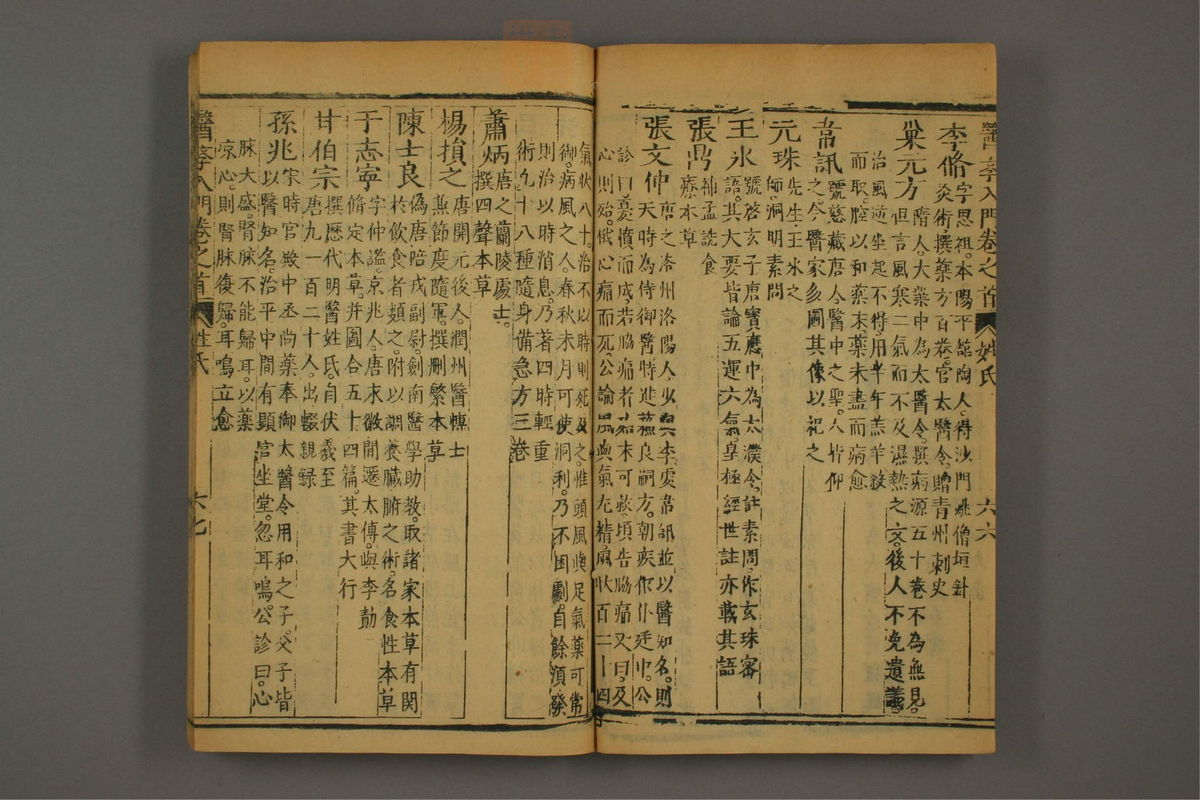 醫學入門卷之首 姓氏 六六
李脩 字思祖。本陽平舘陶人。得沙門姚僧垣針
灸術。撰藥方百卷。官太醫令。贈青州刺史
巢元方 隋人。大業中為太醫令。撰病源五十卷。不為無見。
但言風寒二氣而不及濕熱之文。後人不免遺議
治風逆坐起不得。用半年羔羊殺
而取腔以和藥末。藥未盡而病愈
韋訊 號慈藏。唐人。醫中之聖。人皆仰
之。今醫家多圖其像以祀之
元珠 先生。王冰之
師。洞明素問
王冰 號啓玄子。唐寶應中為太濮令。註素問。作玄珠密
語。其大要皆論五運六氣。皇極經世註亦載其語
張鼎 補孟詵食
療本草
張文仲 唐之洛州洛陽人。少與李虔韋訊並以醫知名。則
天時為侍御醫。時進蘇良嗣方。朝疾作仆廷中。公
診曰。憂憤而成。若脇痛者。始末可救。頃告脇痛。又曰。及
心則殆。俄心痛而死。公論風與氣尤精。扇狀百二十四
氣狀八十。治不以時則死及之。惟頭風與足氣藥可常
御。病風之人。春秋末月可使洞利。乃不困劇。自餘須發
則治以時消息。乃著四時輕重
術九十八種隨身備急方三卷
蕭炳 唐之蘭陵處士。
撰四聲本草
楊損之 唐開元後人。潤州醫博士
兼節度隨軍。撰刪繁本草
陳士良 偽唐陪戎副尉。劍南醫學助教。取諸家本草有関
於飲食者類之。附以調養臟腑之術。名食性本草
于志寧 字仲謐。京兆人。唐永徽間遷太傅。與李勣
脩定本草。并圖合五十四篇。其書大行
甘伯宗 撰歷代明醫姓氏。自伏羲至
唐九一百二十人。出輟親錄
孫兆 宋時官殿中丞尚藥奉御太醫令用和之子。父子皆
以醫知名。治平中間有顯官坐堂。忽耳鳴。公診曰。心
脉大盛。腎脉不能歸耳。以藥
凉心。則腎脉復歸。耳鳴立愈
醫學入門卷之首 姓氏 六七